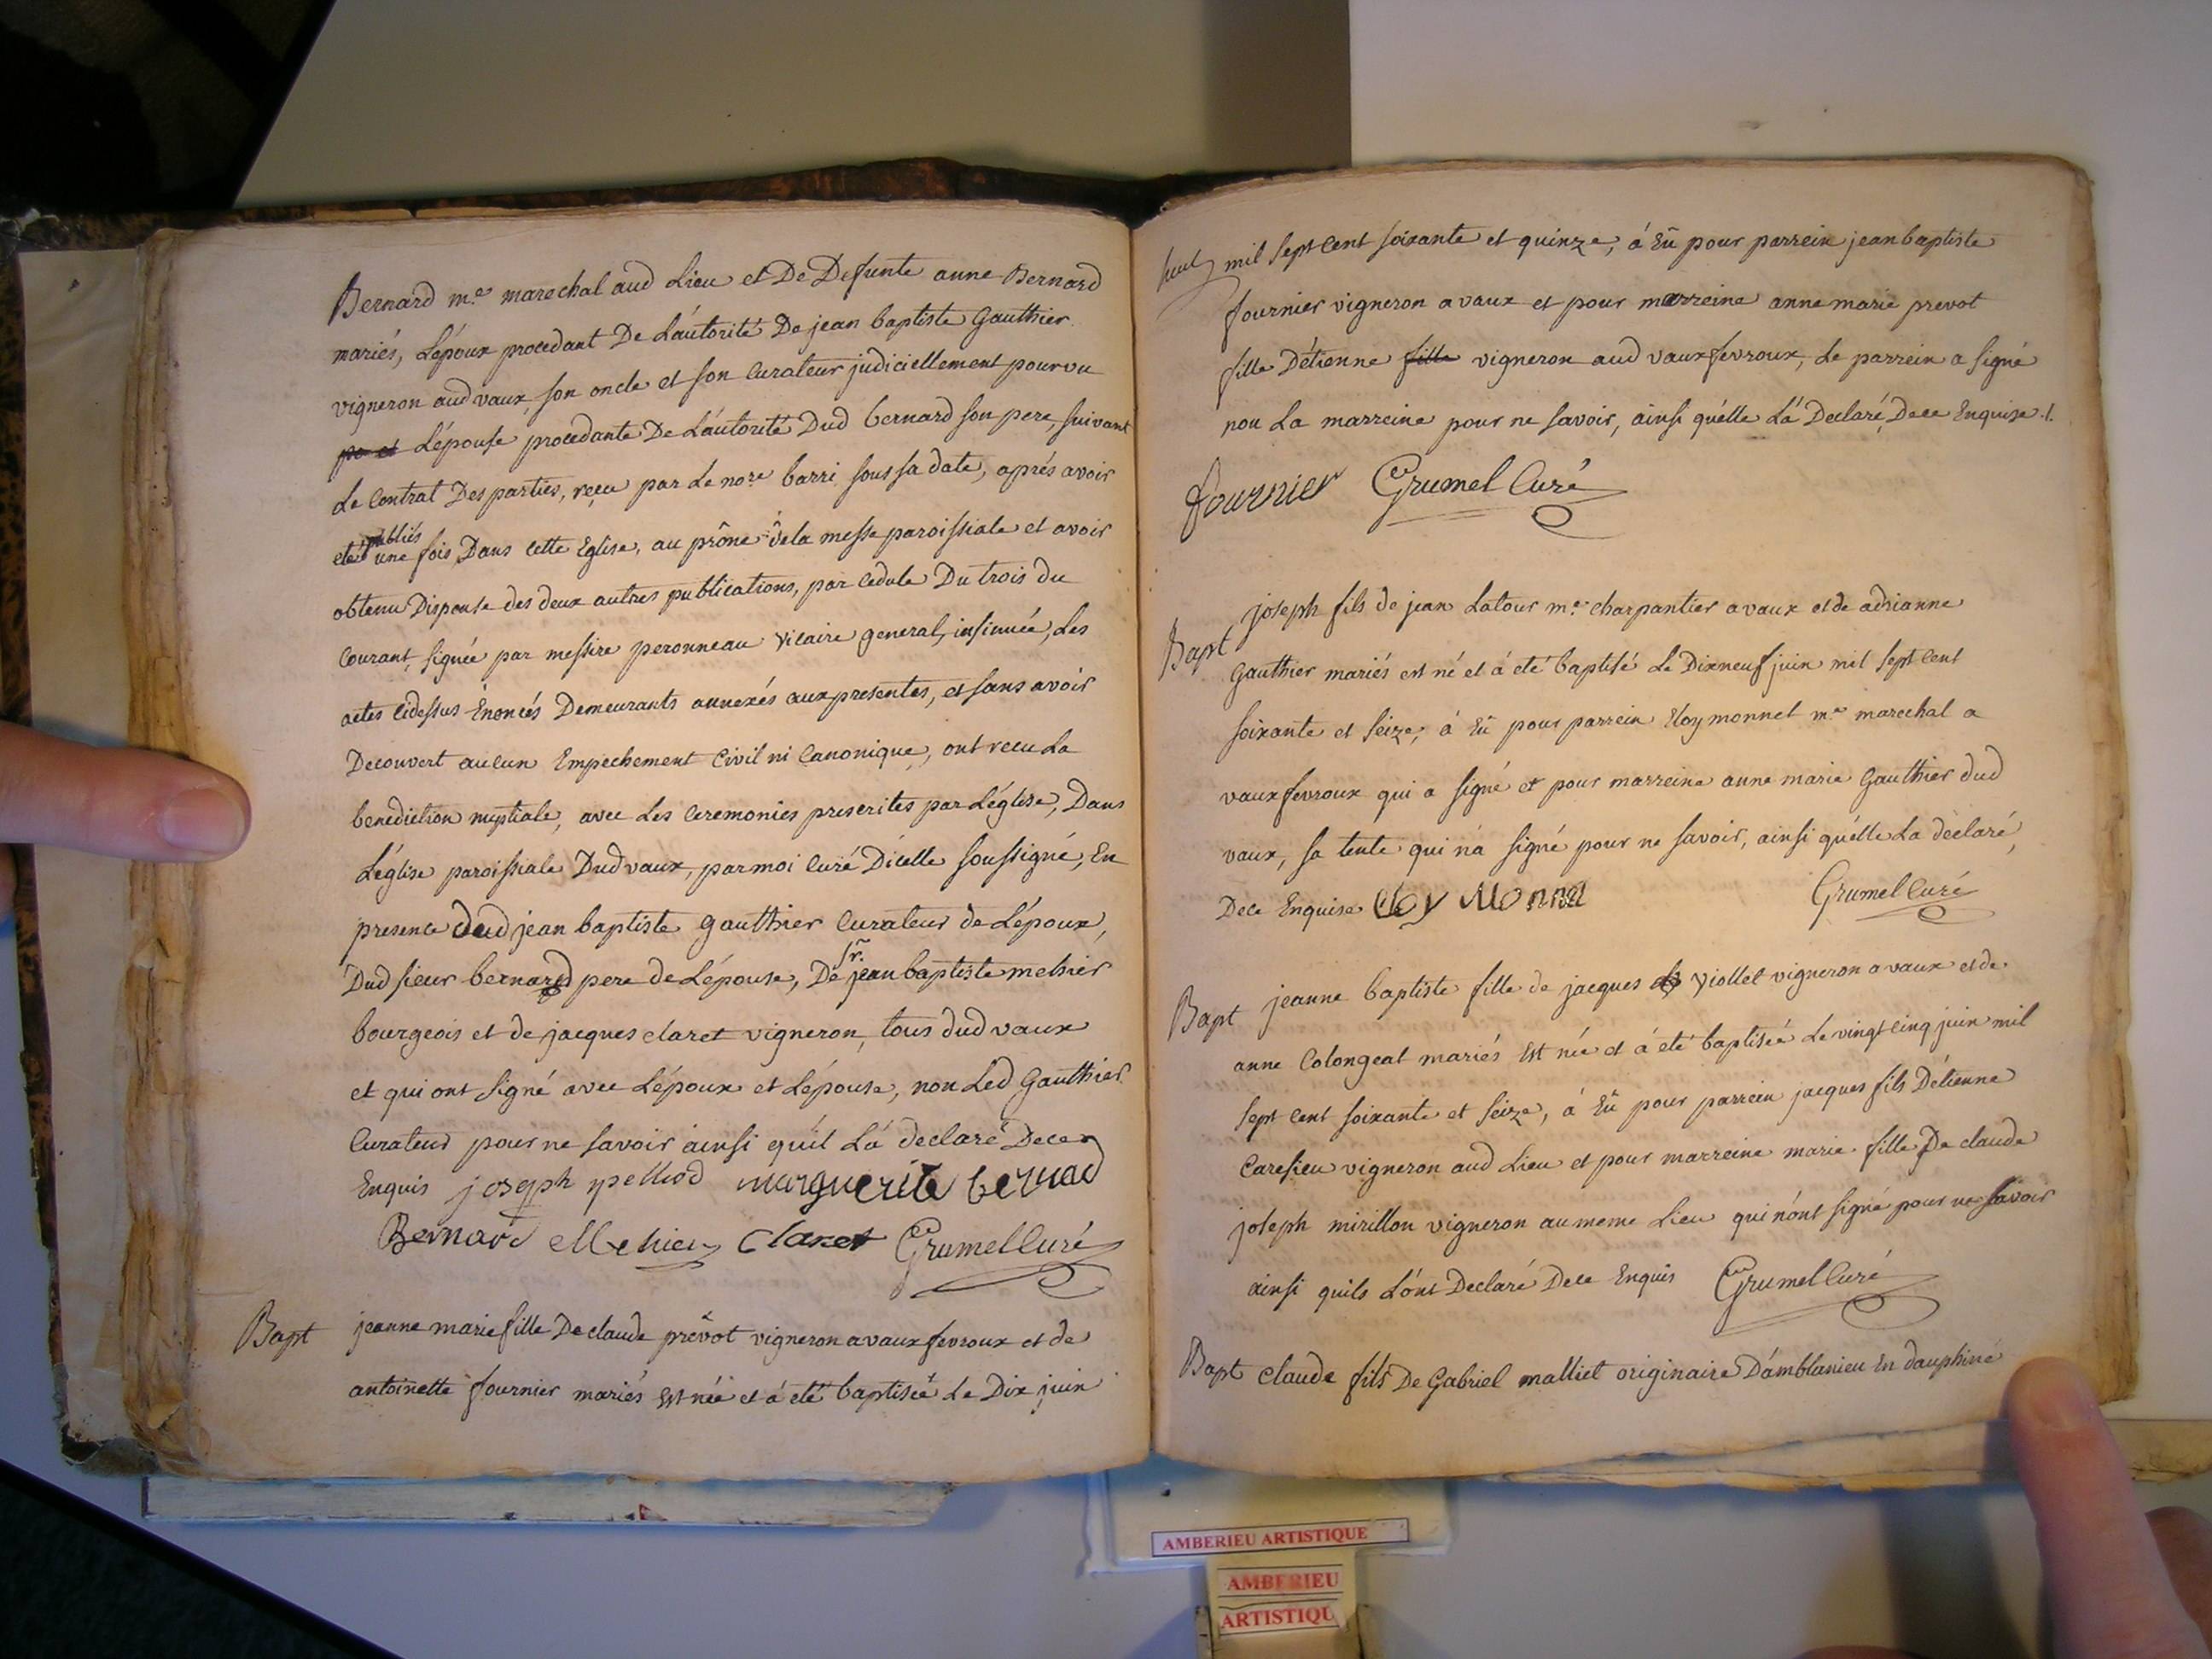 Bernard m.e marechal aud Lieu et De Defunte anne Bernard
mariés, L'époux procedant De L'áutorité De jean baptiste Gauthier
vigneron aud vaux, son oncle et son Curateur judiciellement pourvu
L'épouse procedante De L'áutorité Dud bernard son pere, suivant
Le Contrat Des parties, reçu par Le no.re barri sous sa date, aprés avoir
eté publiés une fois Dans cette Eglise, au prône de la messe paroissiale et avoir
obtenu Dispense des deux autres publications, par cedule Du trois du
Courant, signée par messire peronneau vicaire general, insinuée, Les
actes cidessus Énoncés Demeurants annexés aux presentes, et sans avoir
Decouvert aucun Empechement Civil ni Canonique, ont recu La
benediction nuptiale, avec Les Ceremonies prescrites par L'église, Dans
L'église paroissiale Dud vaux, par moi Curé D'icelle soussigné, En
presence dud jean baptiste gauthier Curateur de L'époux,
Dud sieur bernard pere de L'épouse, De sr. jean baptiste mehier
bourgeois et de jacques claret vigneron, tous dud vaux
et qui ont signé avec L'époux et L'épouse, non Led Gauthier
Curateur pour ne savoir ainsi qu'il L'á declaré Dece
Enquis joseph pelliod marguerite bernad
Bernard Mehier Claret Grumel Curé
Bapt jeanne marie fille De claude prévot vigneron a vaux fevroux et de
antoinette fournier mariés Est née et á eté baptisée Le Dix juin
mil sept Cent soixante et quinze, á Eû pour parrein jean baptiste
fournier vigneron a vaux et pour marreine anne marie prevot
fille D'étienne fille vigneron aud vaux fevroux, Le parrein a signé
non La marreine pour ne savoir, ainsi qu'elle L'á Declaré, Dece Enquise ./.
fournier Grumel Curé
Bapt joseph fils de jean Latour m.e charpantier a vaux et de adrianne
Gauthier mariés est né et á eté baptisé Le Dixneuf juin mil sept Cent
soixante et seize, á Eû pour parrein Eloy monnet m.e marechal a
vaux fevroux qui a signé et pour marreine anne marie Gauthier dud
vaux, sa tente qui n'á signé pour ne savoir, ainsi qu'elle La déclaré,
Dece Enquise Eloy Monna Grumel Curé
Bapt jeanne baptiste fille de jacques viollet vigneron a vaux et de
anne Colongeat mariés Est née et á eté baptisée Le vingt cinq juin mil
sept cent soixante et seize, á Eû pour parrein jacques fils D'étienne
Caresieu vigneron aud Lieu et pour marreine marie fille De claude
joseph mirillon vigneron au meme Lieu qui n'ónt signé pour ne savoir
ainsi quils L'ónt Declaré Dece Enquis Grumel Curé
Bapt claude fils De Gabriel malliet originaire D'ámblanieu En dauphiné
AMBERIEU ARTISTIQUE
AMBERIEU
ARTISTIQU